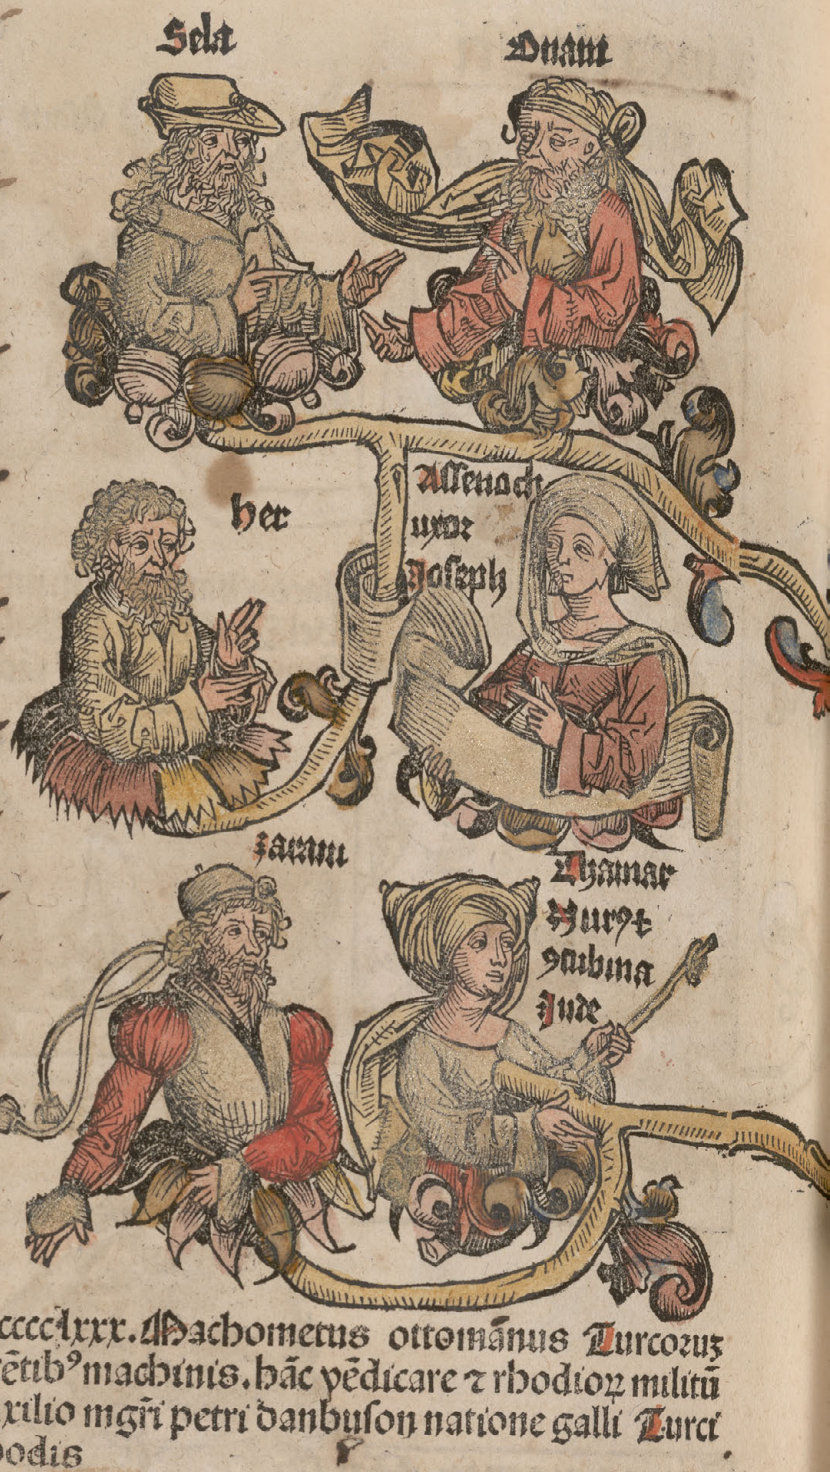 Sela
Onam
her
Assenach
uxor
Joseph
zaram
Thamar
Nurꝯ ⁊
ꝯcubina
Jude
cccclxxx. Machometus ottomānus Turcoꝛuꝫ
rētibꝰ machinis. hāc vēdicare ⁊ rhodioꝝ militū
xilio mgr̄i petri danbuson natione galli Turci
hodis